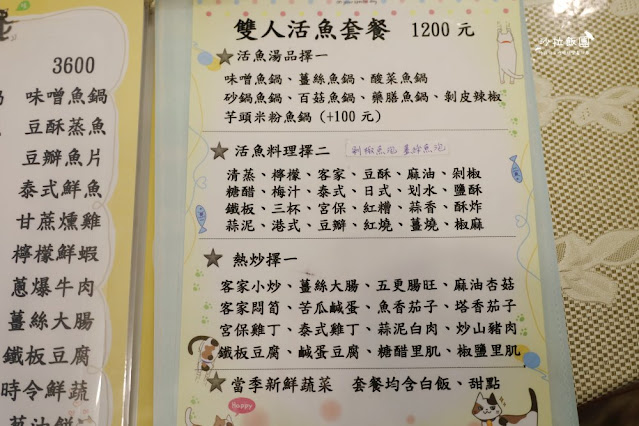 3600
味噌魚鍋
豆酥蒸魚
豆瓣魚片
泰式鮮魚
甘蔗燻雞
檸檬鮮蝦
蔥爆牛肉
薑絲大腸
鐵板豆腐
時令鮮蔬
雙人活魚套餐 1200 元
★活魚湯品擇一
味噌魚鍋、薑絲魚鍋、酸菜魚鍋
砂鍋魚鍋、百菇魚鍋、藥膳魚鍋、剝皮辣椒
芋頭米粉魚鍋 (+100元)
★活魚料理擇二
清蒸、檸檬、客家、豆酥、麻油、剁椒
糖醋、梅汁、泰式、日式、划水、鹽酥
鐵板、三杯、宮保、紅糟、蒜香、酥炸
蒜泥、港式、豆瓣、紅燒、薑燒、椒麻
★熱炒擇一
客家小炒、薑絲大腸、五更腸旺、麻油杏菇
客家悶筍、苦瓜鹹蛋、魚香茄子、塔香茄子
宮保雞丁、泰式雞丁、蒜泥白肉、炒山豬肉
鐵板豆腐、鹹蛋豆腐、糖醋里肌、椒鹽里肌
★當季新鮮蔬菜 套餐均含白飯、甜點
Happy
沙拉飯團